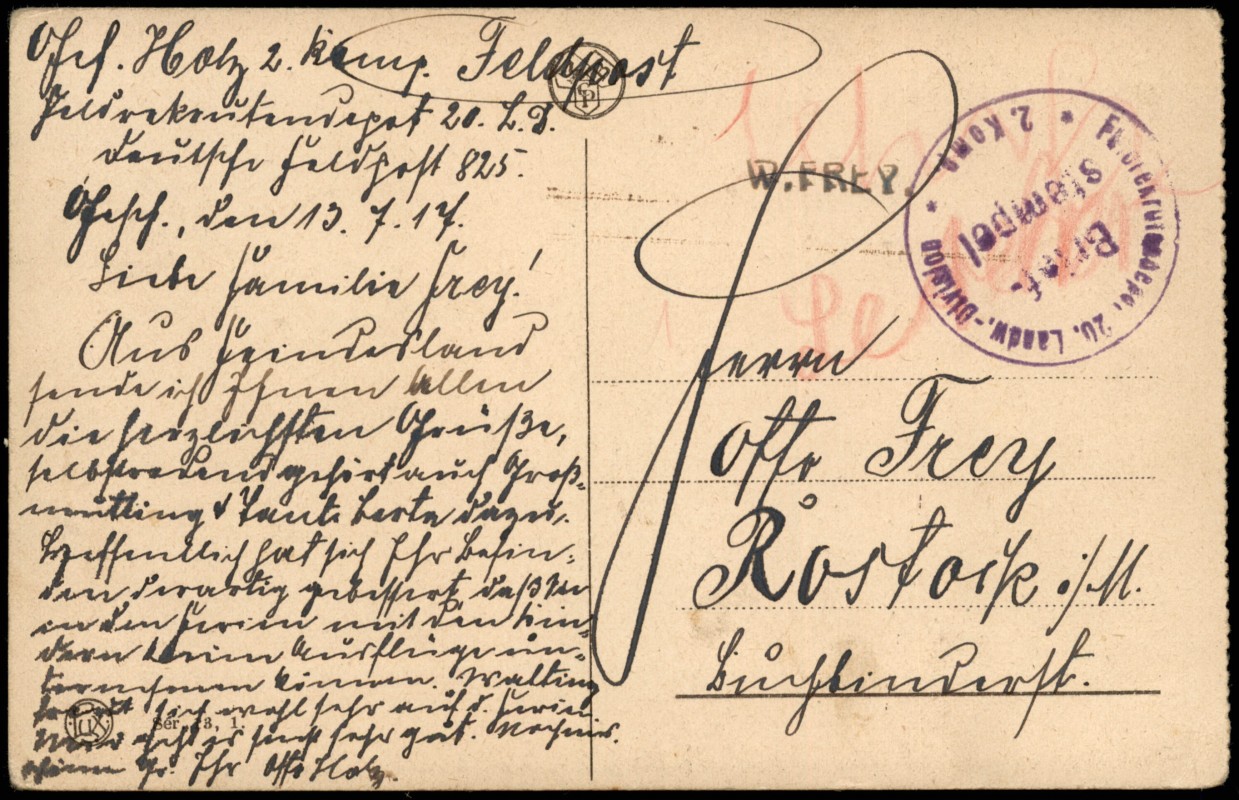 Gef. Holz 2. Komp. Feldpost
Feldrekrutendepot 20. L. D.
Deutsche Feldpost 825.
Gesch., den 13. 7. 17.
Liebe Familie Frey!
Aus Feindesland
sende ich Ihnen Allen
die herzlichsten Grüße,
selbstredend gehört auch Groß-
mutting & Tante Berta dazu.
Hoffentlich hat sich Ihr Befin-
den derartig gebessert, daß Sie
in den Ferien mit den Kin-
dern kleine Ausflüge un-
ternehmen können. Walting
freut sich wohl sehr auf d. Ferien
geht es sonst sehr gut. Nochm.
Gr. Ihr Otto Holz.
Sér. 13, 1
W. FREY.
Feldrekrutendepot 20. Landw.-Division * 2. Komp. *
Brief-
stempel
Herrn
Otto Frey
Rostock i/M.
Buchbinderstr.